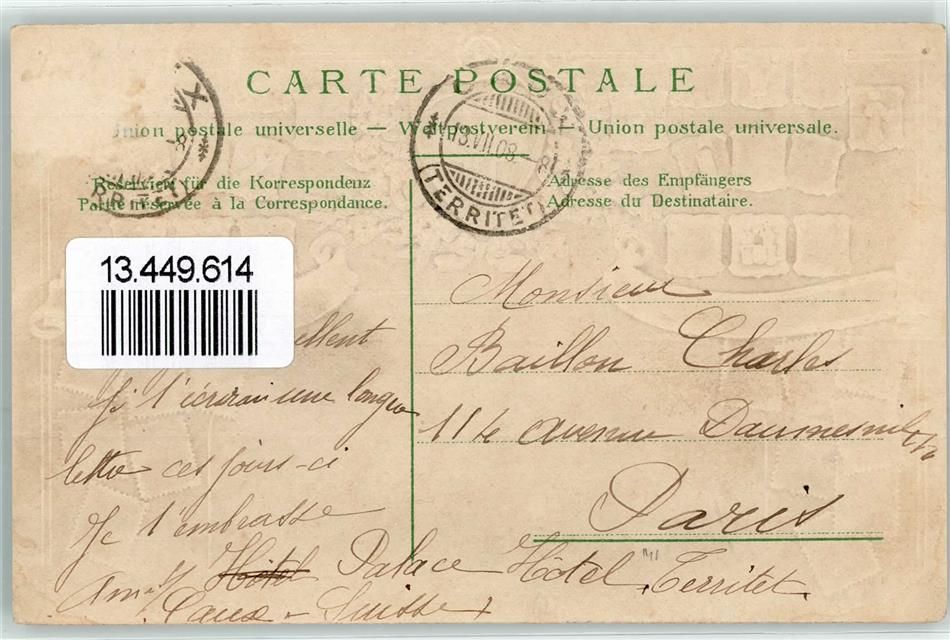 CARTE POSTALE
Union postale universelle — Weltpostverein — Union postale universale.
Reserviert für die Korrespondenz
Partie réservée à la Correspondance.
Adresse des Empfängers
Adresse du Destinataire.
13.VII.08.
(TERRITET)
13.449.614
Je t'écrirai une longue
lettre ces jours-ci
Je t'embrasse
Hôtel Palace Hôtel Territet
Caux - Suisse
Monsieur
Baillon Charles
114 avenue Daumesnil
Paris